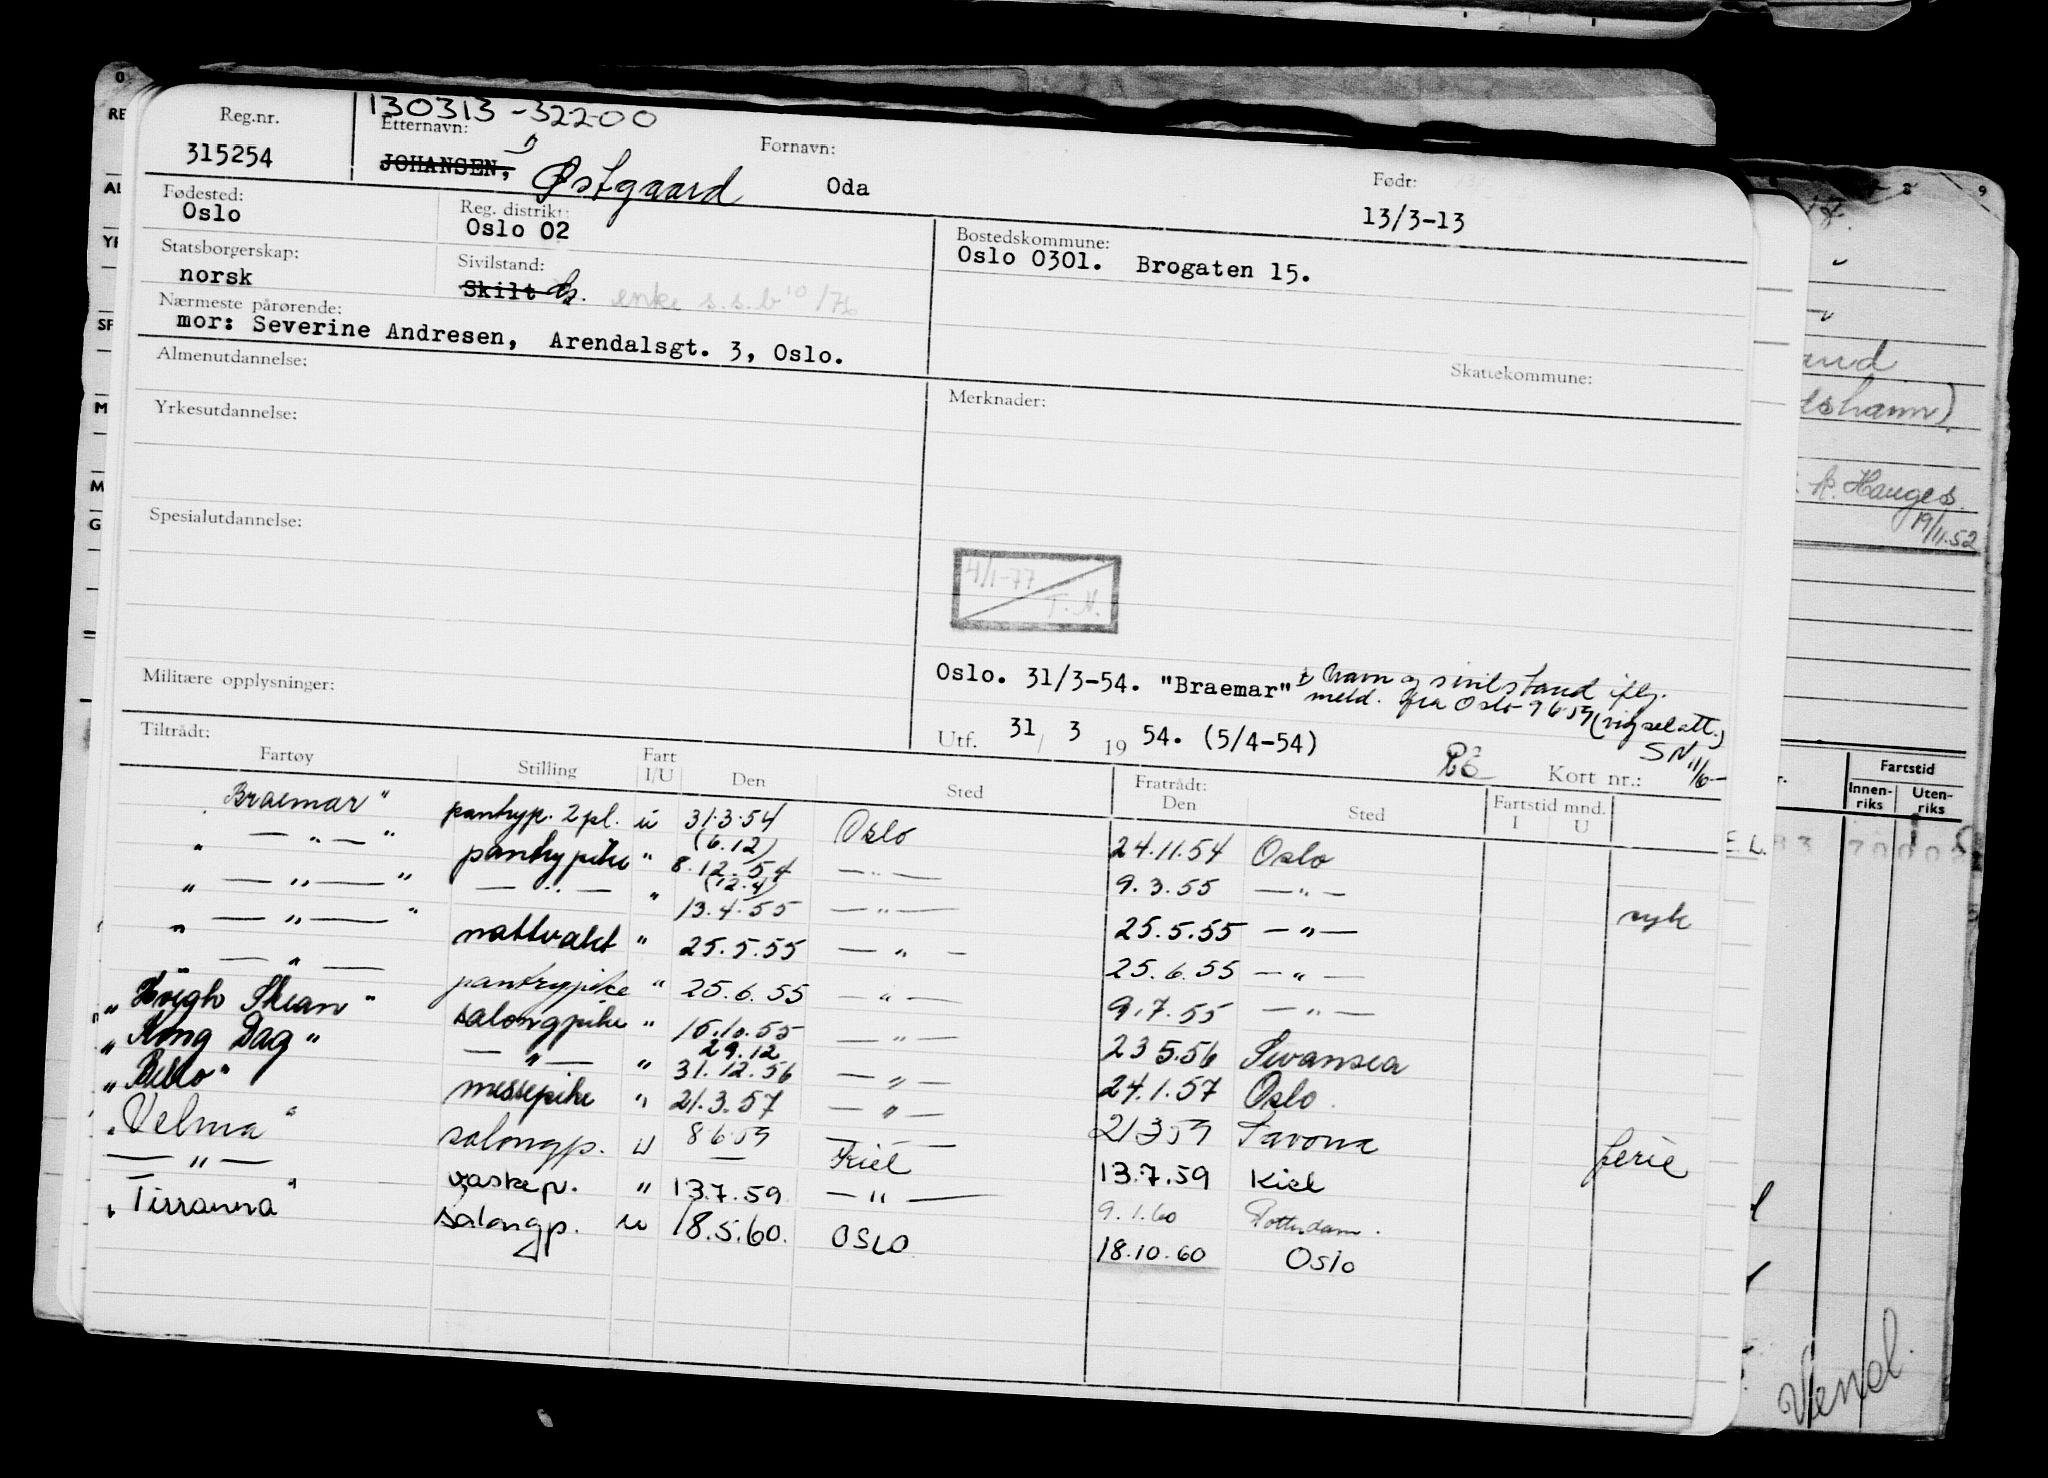 130313-32200
Reg.nr. Etternavn: Fornavn: Født:
315254 JOHANSEN, Østgaard Oda 13/3-13
Fødested: Reg. distrikt: Bostedskommune:
Oslo Oslo 02 Oslo 0301. Brogaten 15.
Statsborgerskap: Sivilstand:
norsk Skilt G. enke s.s.b 10/76
Nærmeste pårørende:
mor: Severine Andresen, Arendalsgt. 3, Oslo.
Skattekommune:
Almenutdannelse: Merknader:
Yrkesutdannelse:
Spesialutdannelse:
4/1-77
T.N.
Militære opplysninger:
Oslo. 31/3-54. "Braemar" Navn og sivilstand iflg.
meld. fra Oslo 9659 (vigselatt.)
SN 11/6-
Utf. 31/ 3 19 54. (5/4-54) Kort nr.:
Tiltrådt: Fratrådt:
Fartøy Stilling Fart I/U Den Sted Den Sted Fartstid mnd. I U
"Braemar" pantryp. 2 pl. u 31.3.54 Oslo 24.11.54 Oslo
(6.12)
" — " — " pantrypike " 8.12.54 — " — 9.3.55 — " — syk
(12.4)
" — " — " — " — " 13.4.55 — " — 25.5.55 — " —
" — " — " nattvakt " 25.5.55 — " — 25.6.55 — " —
— " — pantrypike " 25.6.55 — " — 9.7.55 — " —
"Høegh Skean" salongpike " 15.10.55 — " — 23.5.56 Swansea
29.12
"Kong Dag" — " — " 31.12.56 — " — 24.1.57 Oslo
"Bello" messepike " 21.3.57 — " — 21359 Savona ferie
"Velma" salongp. u 8659 Kiel 13.7.59 Kiel
— " — vaskep. " 13.7.59 — " — 9.1.60 Rotterdam.
"Tirranna" salongp. u 18.5.60. OSLO 18.10.60 Oslo
and
P. Hauges
19/11.52
Fartstid
Innenriks Utenriks
E.L.
Vend.